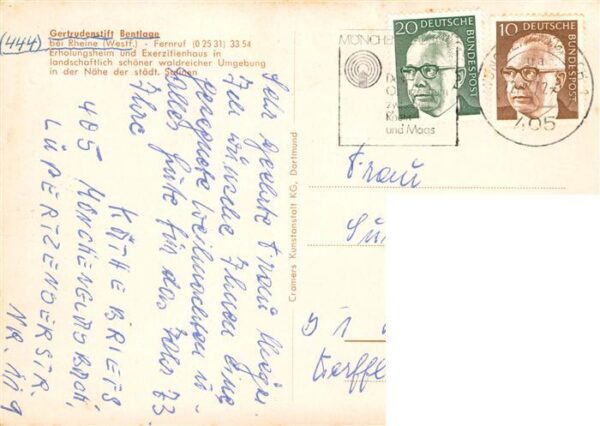 (444)
Gertrudenstift Bentlage
bei Rheine (Westf.) - Fernruf (0 25 31) 33 54
Erholungsheim und Exerzitienhaus in
landschaftlich schöner waldreicher Umgebung
in der Nähe der städt. Salinen
Sehr geehrte Frau
Ich wünsche Ihnen eine
gesegnete Weihnachten u.
alles gute für das Jahr 73
Ihre
KÄTHE BRIEFS
405 MÖNCHENGLADBACH
LÜPERTZENDERSTR.
NR. 119
Cramers Kunstanstalt KG, Dortmund
MÖNCHEN
und Maas
20 DEUTSCHE BUNDESPOST
10 DEUTSCHE BUNDESPOST
405
Frau
D 1